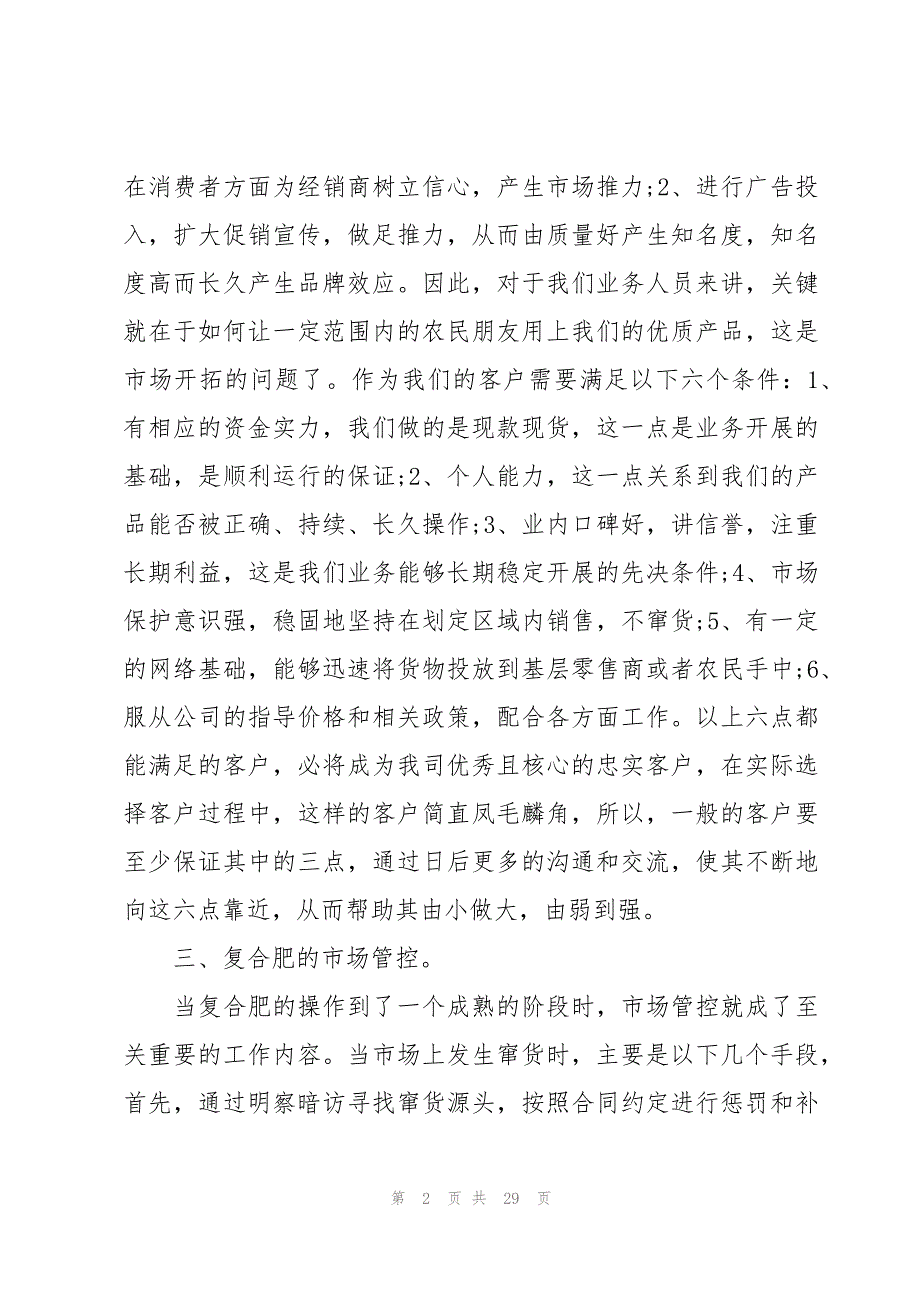 在消费者方面为经销商树立信心，产生市场推力;2、进行广告投
入，扩大促销宣传，做足推力，从而由质量好产生知名度，知名
度高而长久产生品牌效应。因此，对于我们业务人员来讲，关键
就在于如何让一定范围内的农民朋友用上我们的优质产品，这是
市场开拓的问题了。作为我们的客户需要满足以下六个条件：1、
有相应的资金实力，我们做的是现款现货，这一点是业务开展的
基础，是顺利运行的保证;2、个人能力，这一点关系到我们的产
品能否被正确、持续、长久操作;3、业内口碑好，讲信誉，注重
长期利益，这是我们业务能够长期稳定开展的先决条件;4、市场
保护意识强，稳固地坚持在划定区域内销售，不窜货;5、有一定
的网络基础，能够迅速将货物投放到基层零售商或者农民手中;6、
服从公司的指导价格和相关政策，配合各方面工作。以上六点都
能满足的客户，必将成为我司优秀且核心的忠实客户，在实际选
择客户过程中，这样的客户简直凤毛麟角，所以，一般的客户要
至少保证其中的三点，通过日后更多的沟通和交流，使其不断地
向这六点靠近，从而帮助其由小做大，由弱到强。
三、复合肥的市场管控。
当复合肥的操作到了一个成熟的阶段时，市场管控就成了至
关重要的工作内容。当市场上发生窜货时，主要是以下几个手段，
首先，通过明察暗访寻找窜货源头，按照合同约定进行惩罚和补
第 2 页 共 29 页